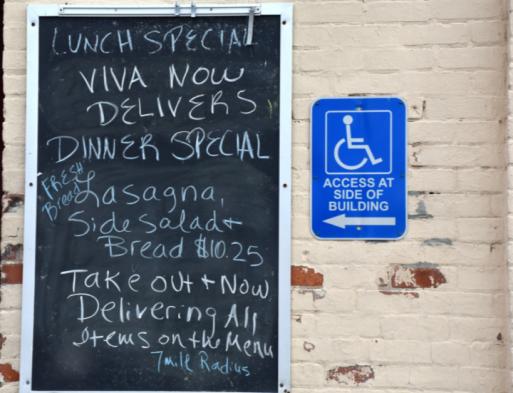 LUNCH SPECIAL
VIVA NOW
DELIVERS
DINNER SPECIAL
FRESH
Bread
Lasagna,
Side Salad +
Bread $10.25
Take out + Now
Delivering All
Items on the Menu
7 mile Radius
ACCESS AT
SIDE OF
BUILDING